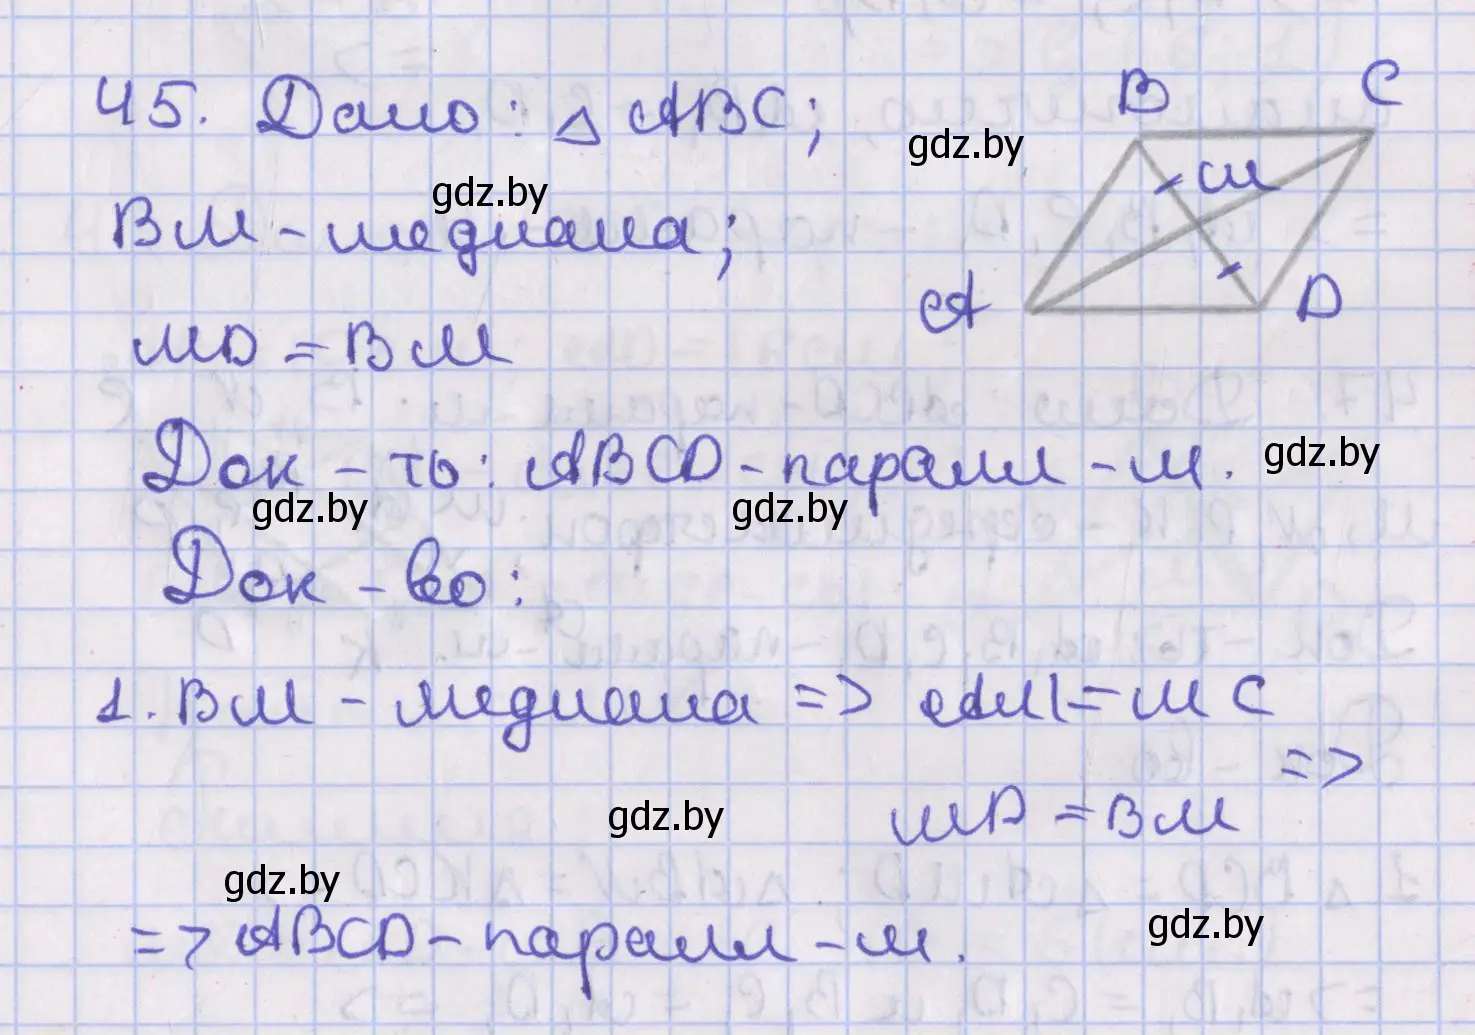 45. Дано: △ ABC;
B
C
gdz.by
м
gdz.by
BM - медиана;
A
D
MD = BM
Док - ть: ABCD - паралл - м.
gdz.by
gdz.by
gdz.by
Док - во:
1. BM - медиана => AM = MC
=>
MD = BM
gdz.by
gdz.by
=> ABCD - паралл - м.
gdz.by